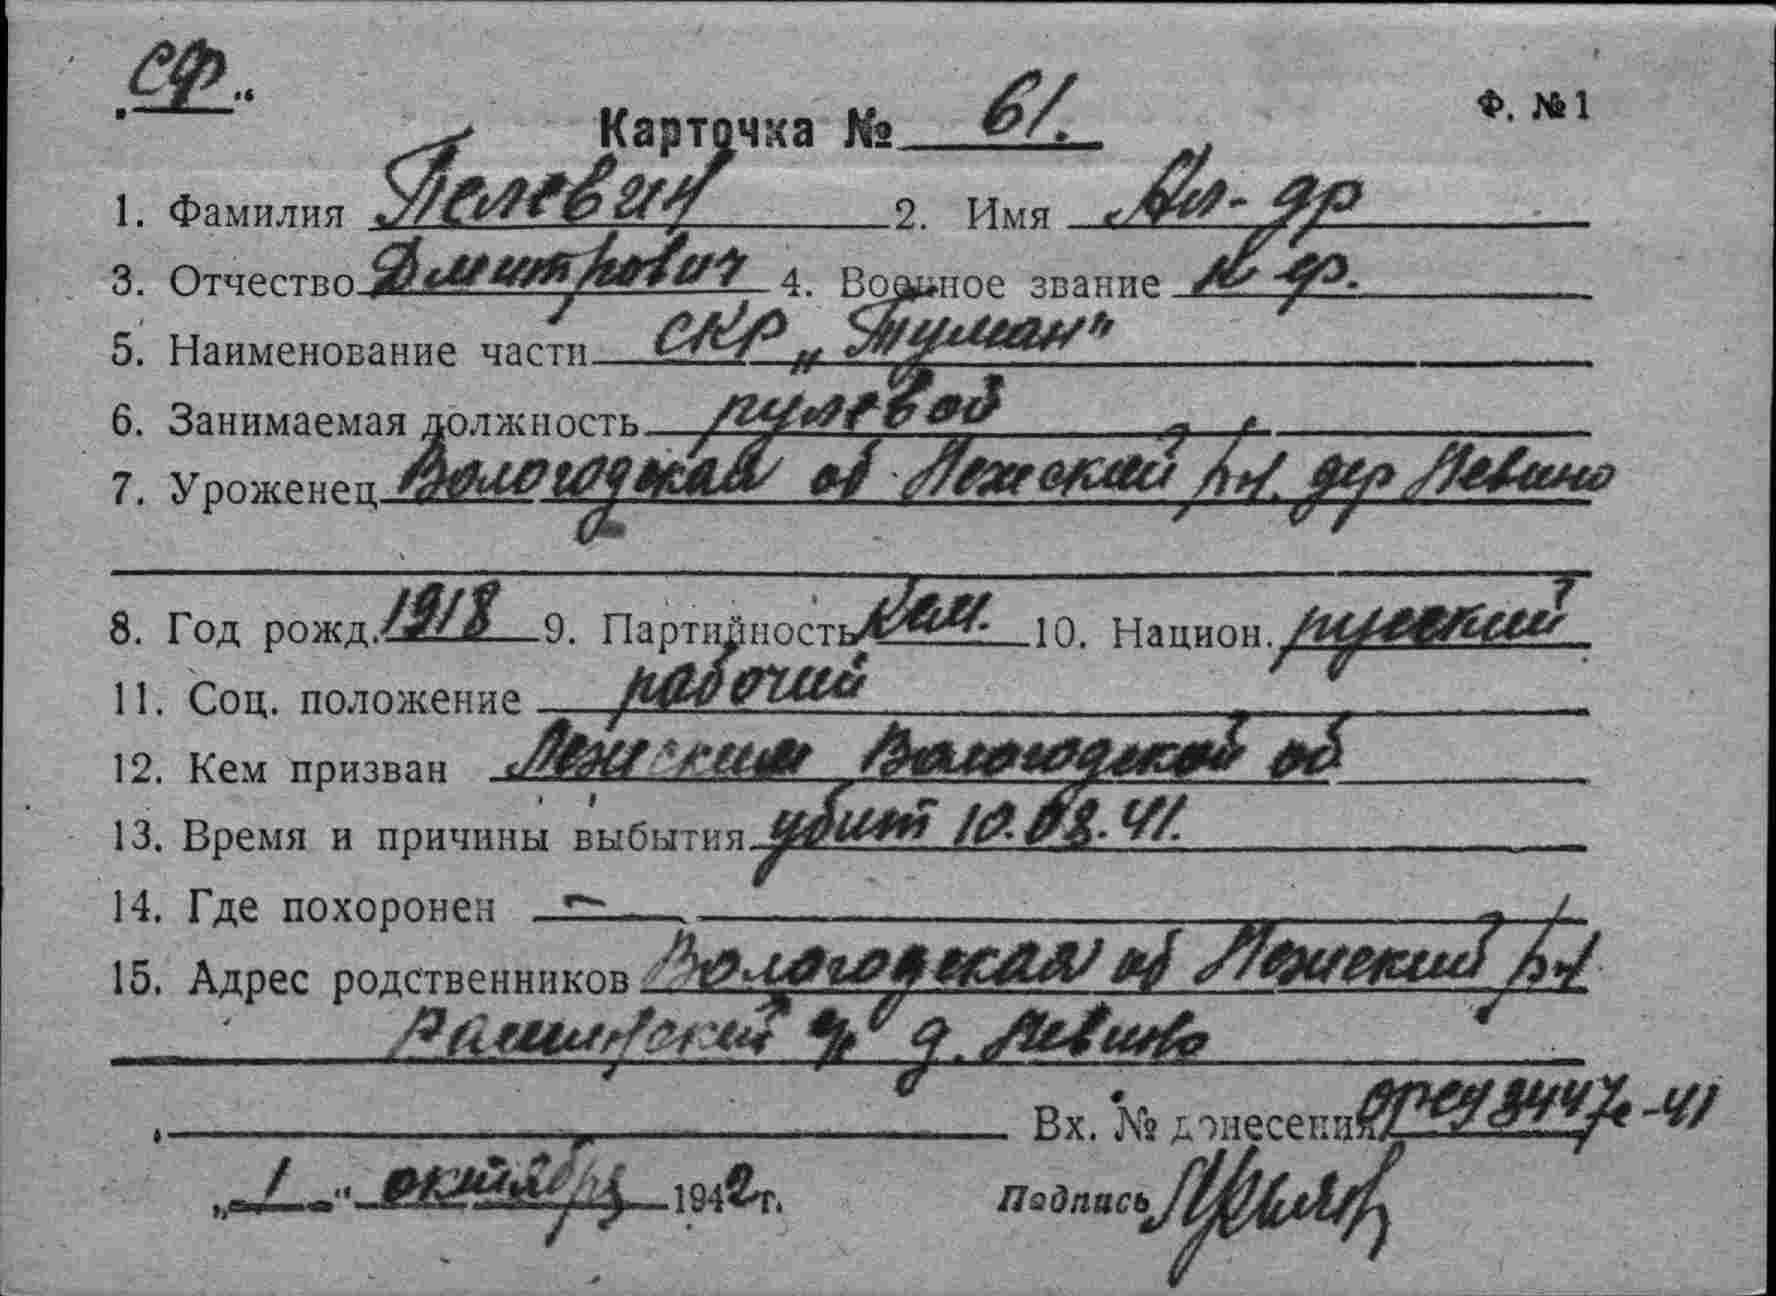 СФ.
Ф. №1
Карточка № 61.
1. Фамилия Пелевин 2. Имя Ал-др
3. Отчество Дмитриевич 4. Военное звание кр-ф.
5. Наименование части СКР „Туман"
6. Занимаемая должность рулевой
7. Уроженец Вологодская об Лежский р-н. дер
8. Год рожд. 1918 9. Партийность Кан. 10. Национ. русский
11. Соц. положение рабочий
12. Кем призван Лежским Вологодской об
13. Время и причины выбытия убит 10.08.41.
14. Где похоронен —
15. Адрес родственников Вологодская об Лежский р-н
с/с д.
Вх. № донесения -41
„1" октября 1942 г. Подпись